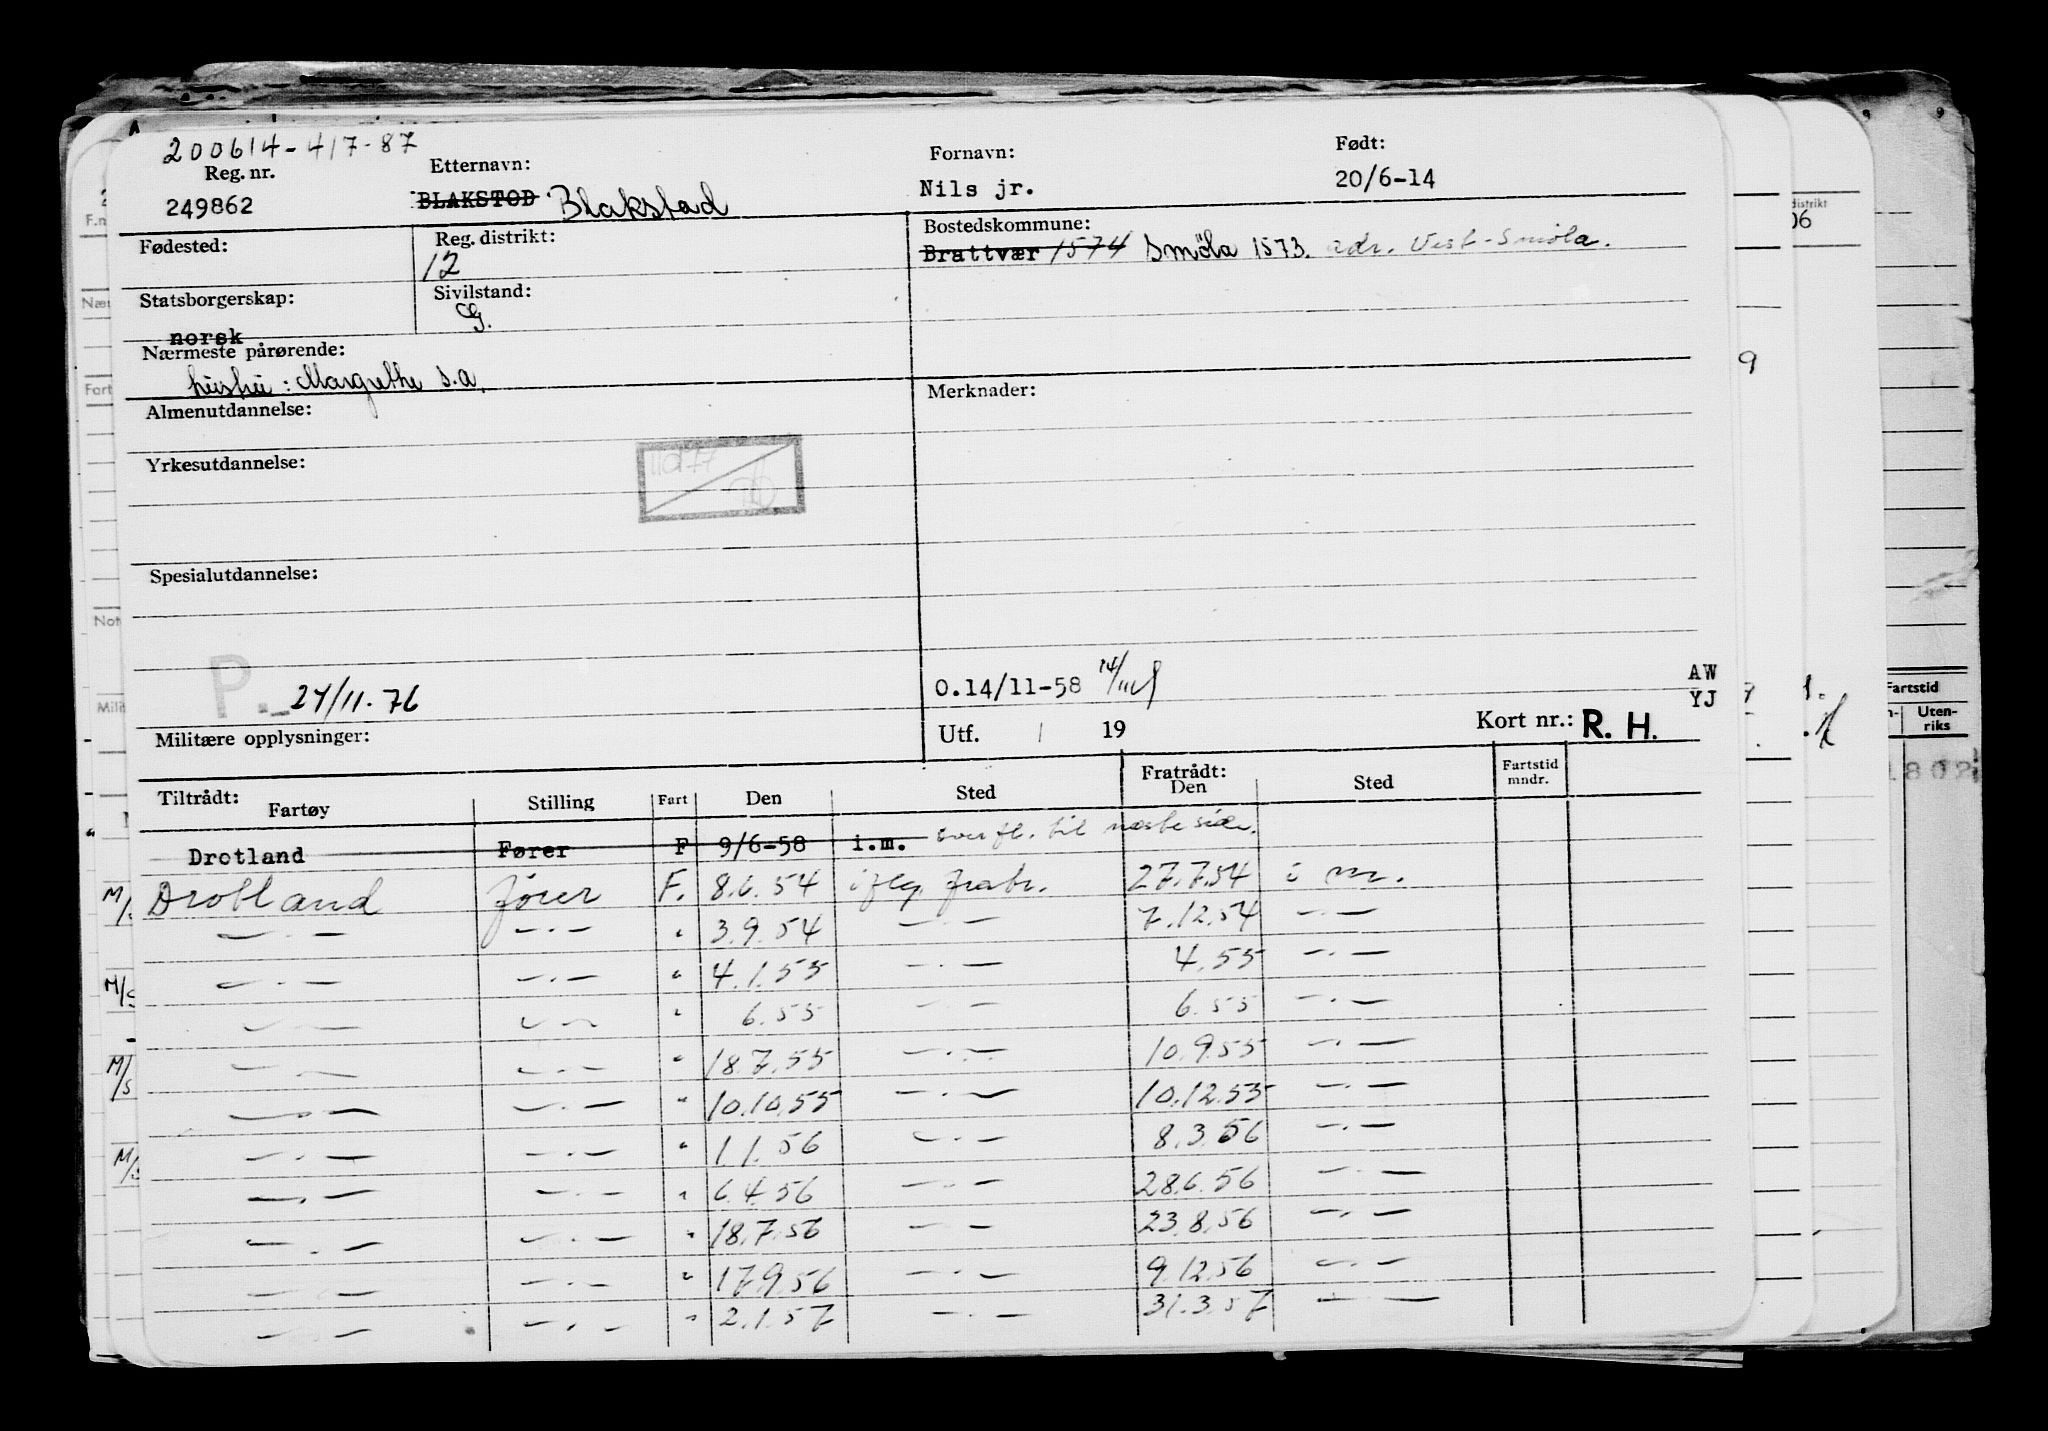 200614-417-87
Reg. nr. Etternavn: Fornavn: Født:
249862 BLAKSTOD Blakstad Nils jr. 20/6-14
Fødested: Reg. distrikt: Bostedskommune:
12 Brattvær 1574 Smöla 1573. adr. Vest-Smöla.
Statsborgerskap: Sivilstand:
norsk G.
Nærmeste pårørende:
hustru: Margrethe s.a.
Almenutdannelse: Merknader:
Yrkesutdannelse:
Spesialutdannelse:
P. 24/11.76 O.14/11-58 14/11 AW
YJ
Militære opplysninger: Utf. / 19 Kort nr.: R. H.
Tiltrådt: Fartøy Stilling Fart Den Sted Fratrådt: Den Sted Fartstid mndr.
Drotland Fører F 9/6-58 i.m. overfl. til neste side.
Drotland fører F. 8.6.54 iflg. fratr. 27.7.54 i m.
— . — — . — " 3.9.54 — . — 7.12.54 — . —
— . — — . — " 4.1.55 — . — 4.55 — . —
— . — — . — " 6.55 — . — 6.55 — . —
— . — — . — " 18.7.55 — . — 10.9.55 — . —
— . — — . — " 10.10.55 — . — 10.12.55 — . —
— . — — . — " 1.1.56 — . — 8.3.56 — . —
— . — — . — " 6.4.56 — . — 28.6.56 — . —
— . — — . — " 18.7.56 — . — 23.8.56 — . —
— . — — . — " 17.9.56 — . — 9.12.56 — . —
— . — — . — " 2.1.57 — . — 31.3.57 — . —
Fartstid
Uten-
riks